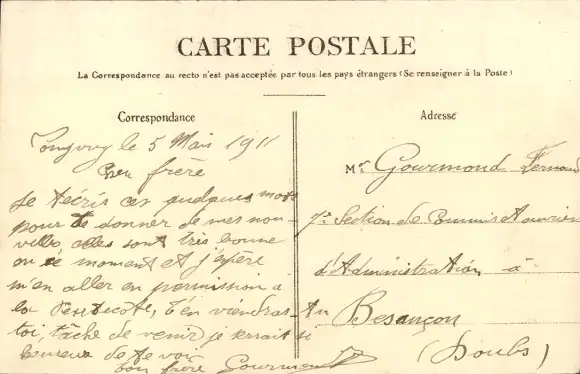 CARTE POSTALE
La Correspondance au recto n'est pas acceptée par tous les pays étrangers (Se renseigner à la Poste)
Correspondance
le 5 Mais 1911
frère
Je técris ces quelques mots
pour te donner de mes nou-
velles, elles sont très bonne
en ce moment et j'epère
m'en aller en permission a
la Pentecote, t'en viendras-tu
toi, tâche de venir je serait si
heureux de te voir
ton frère Gourmond
Adresse
Mr. Gourmond Fernand
7e Section de Commis et ouvriers
d'Administration à
Besançon
(Doubs)